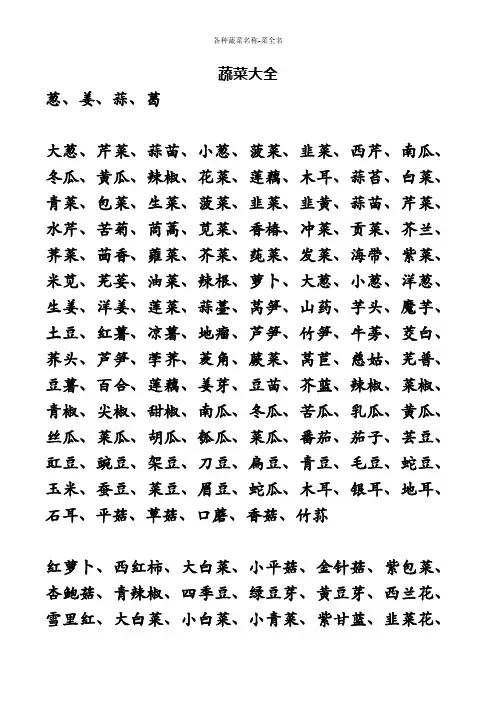 各种蔬菜名称-菜全名
蔬菜大全
葱、姜、蒜、葛
大葱、芹菜、蒜苗、小葱、菠菜、韭菜、西芹、南瓜、
冬瓜、黄瓜、辣椒、花菜、莲藕、木耳、蒜苔、白菜、
青菜、包菜、生菜、菠菜、韭菜、韭黄、蒜苗、芹菜、
水芹、苦菊、茼蒿、苋菜、香椿、冲菜、贡菜、芥兰、
荠菜、茴香、蕹菜、芥菜、莼菜、发菜、海带、紫菜、
米苋、芫荽、油菜、辣根、萝卜、大葱、小葱、洋葱、
生姜、洋姜、莲菜、蒜薹、莴笋、山药、芋头、魔芋、
土豆、红薯、凉薯、地瘤、芦笋、竹笋、牛蒡、茭白、
荞头、芦笋、荸荠、菱角、蕨菜、莴苣、慈姑、芜普、
豆薯、百合、莲藕、姜芽、豆苗、芥蓝、辣椒、菜椒、
青椒、尖椒、甜椒、南瓜、冬瓜、苦瓜、乳瓜、黄瓜、
丝瓜、菜瓜、胡瓜、瓠瓜、菜瓜、番茄、茄子、芸豆、
豇豆、豌豆、架豆、刀豆、扁豆、青豆、毛豆、蛇豆、
玉米、蚕豆、菜豆、眉豆、蛇瓜、木耳、银耳、地耳、
石耳、平菇、草菇、口蘑、香菇、竹荪
红萝卜、西红柿、大白菜、小平菇、金针菇、紫包菜、
杏鲍菇、青辣椒、四季豆、绿豆芽、黄豆芽、西兰花、
雪里红、大白菜、小白菜、小青菜、紫甘蓝、韭菜花、